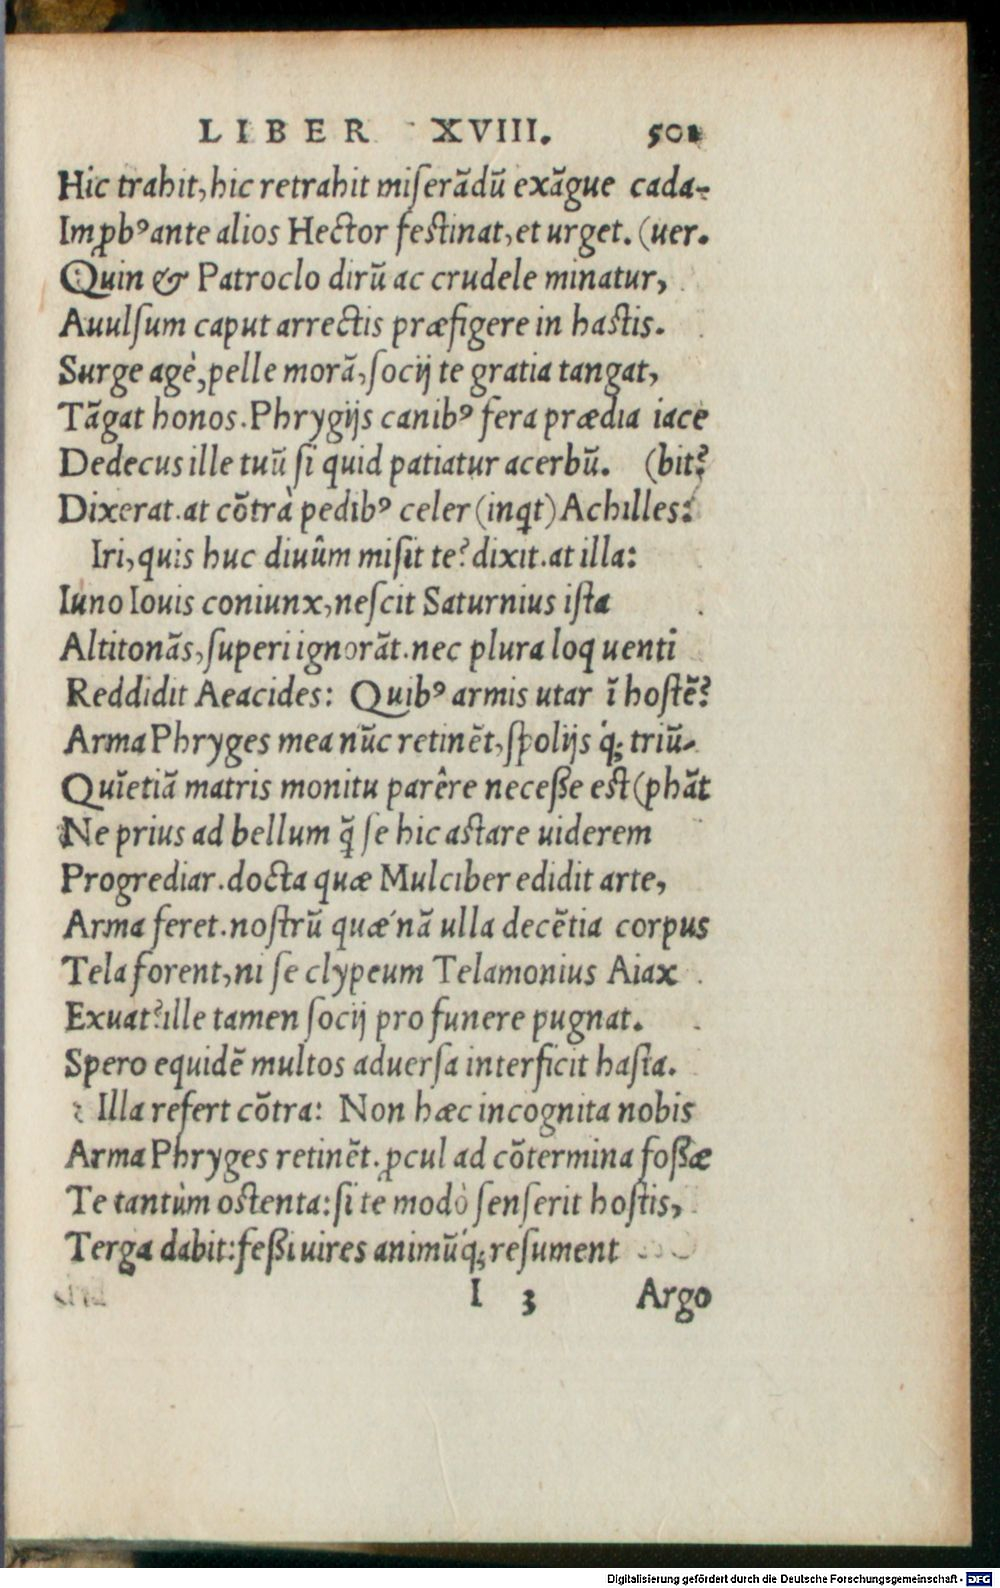 LIBER XVIII. 501
Hic trahit, hic retrahit miserãdũ exãgue cada-
Imꝓbꝰ ante alios Hector festinat, et urget. (uer.
Quin & Patroclo dirũ ac crudele minatur,
Auulsum caput arrectis præfigere in hastis.
Surge agè, pelle morã, socij te gratia tangat,
Tãgat honos. Phrygijs canibꝰ fera prædia iace
Dedecus ille tuũ si quid patiatur acerbũ. (bit?
Dixerat. at cõtrà pedibꝰ celer (inqt) Achilles:
Iri, quis huc diuûm misit te? dixit. at illa:
Iuno Iouis coniunx, nescit Saturnius ista
Altitonãs, superi ignorãt. nec plura loquenti
Reddidit Aeacides: Quibꝰ armis utar ĩ hostẽ?
Arma Phryges mea nũc retinẽt, spolijs q́; triũ-
Quĩetiã matris monitu parêre necesse est (phãt
Ne prius ad bellum q̃ se hic astare uiderem
Progrediar. docta quæ Mulciber edidit arte,
Arma feret. nostrũ quæ nã ulla decẽtia corpus
Tela forent, ni se clypeum Telamonius Aiax
Exuat? ille tamen socij pro funere pugnat.
Spero equidẽ multos aduersa interficit hasta.
Illa refert cõtra: Non hæc incognita nobis
Arma Phryges retinẽt. ꝓcul ad cõtermina fossæ
Te tantùm ostenta: si te modò senserit hostis,
Terga dabit: fessi uires animũq́; resument
I 3 Argo
Digitalisierung gefördert durch die Deutsche Forschungsgemeinschaft - DFG